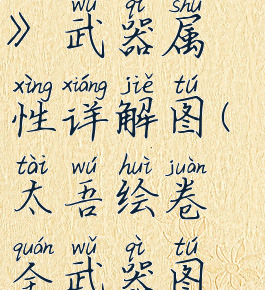 wǔ qì shǔ
》武器属
xìng xiáng jiě tú
性详解图(
tài wú huì juàn
太吾绘卷
quán wǔ qì tú
全武器图